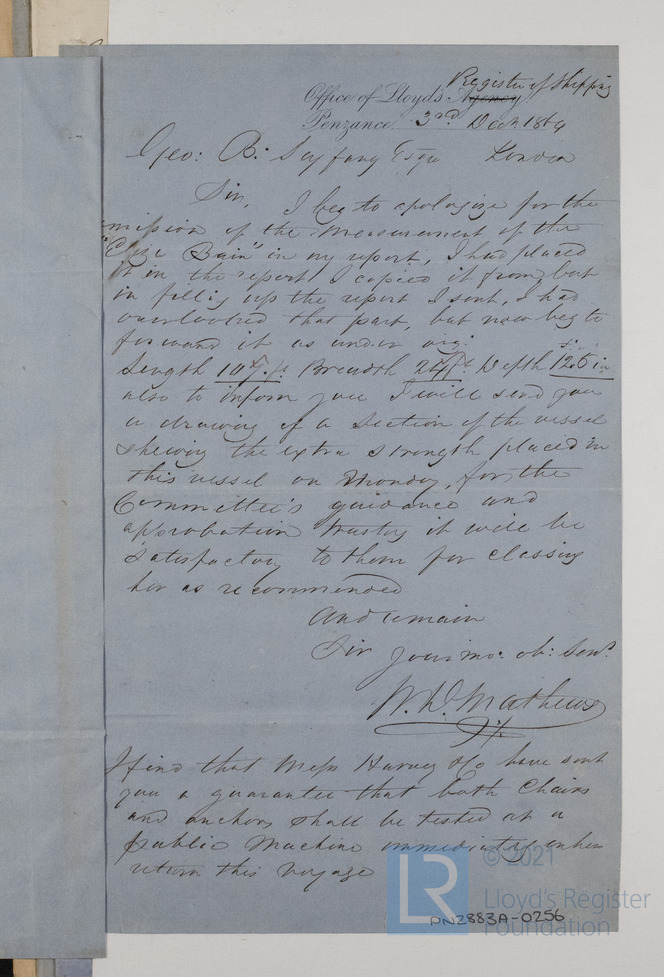 Office of Lloyd's Agency Register of Shipping
Penzance 3rd Decr 1869
Geo: B: Seyfang Esqre London
Sir, I beg to apologize for the
omission of the measurement of the
"Eliza Bain" in my report, I had placed
it in the report I copied it from, but
in fillig up the report I sent, I had
overlooked that part, but now beg to
forward it as under
Length 107 ft Breadth 24 ft Depth 12.5 in
also to inform you I will send you
a drawing of a Section of the vessel
shewing the extra strength placed in
this vessel on Monday, for the
Committee's guidance and
approbation trustg it will be
satisfactory to them for classing
her as recommended
And remain
Sir your mo: ob: Servt
W. D. Mathews
I find that Messs Harvey & Co have sent
you a guarantee that both Chains
and anchors shall be tested at a
public Machine immediately when
return this voyage
© 2021
LR
Lloyd's Register
Foundation
PN2883A-0256